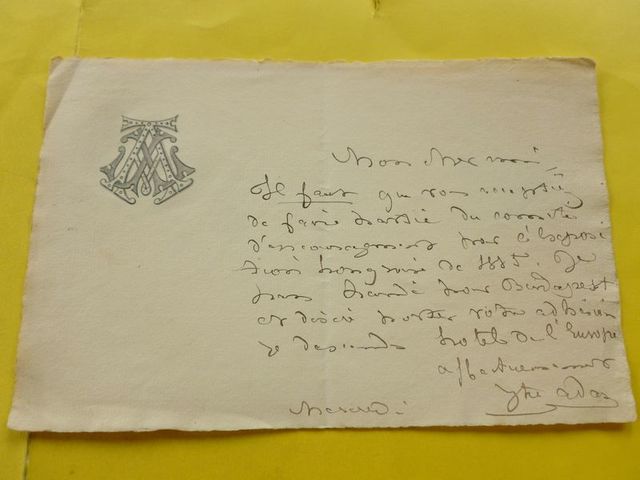 Mon cher ami,
Il faut que vous acceptiez
de faire partie du comité
d'encouragement pour l'Exposi
tion hongroise de 1885. Je
pars mardi pour Budapest
et désire porter votre adhésion
je descends hotel de l'Europe
affectueusement
Mercredi